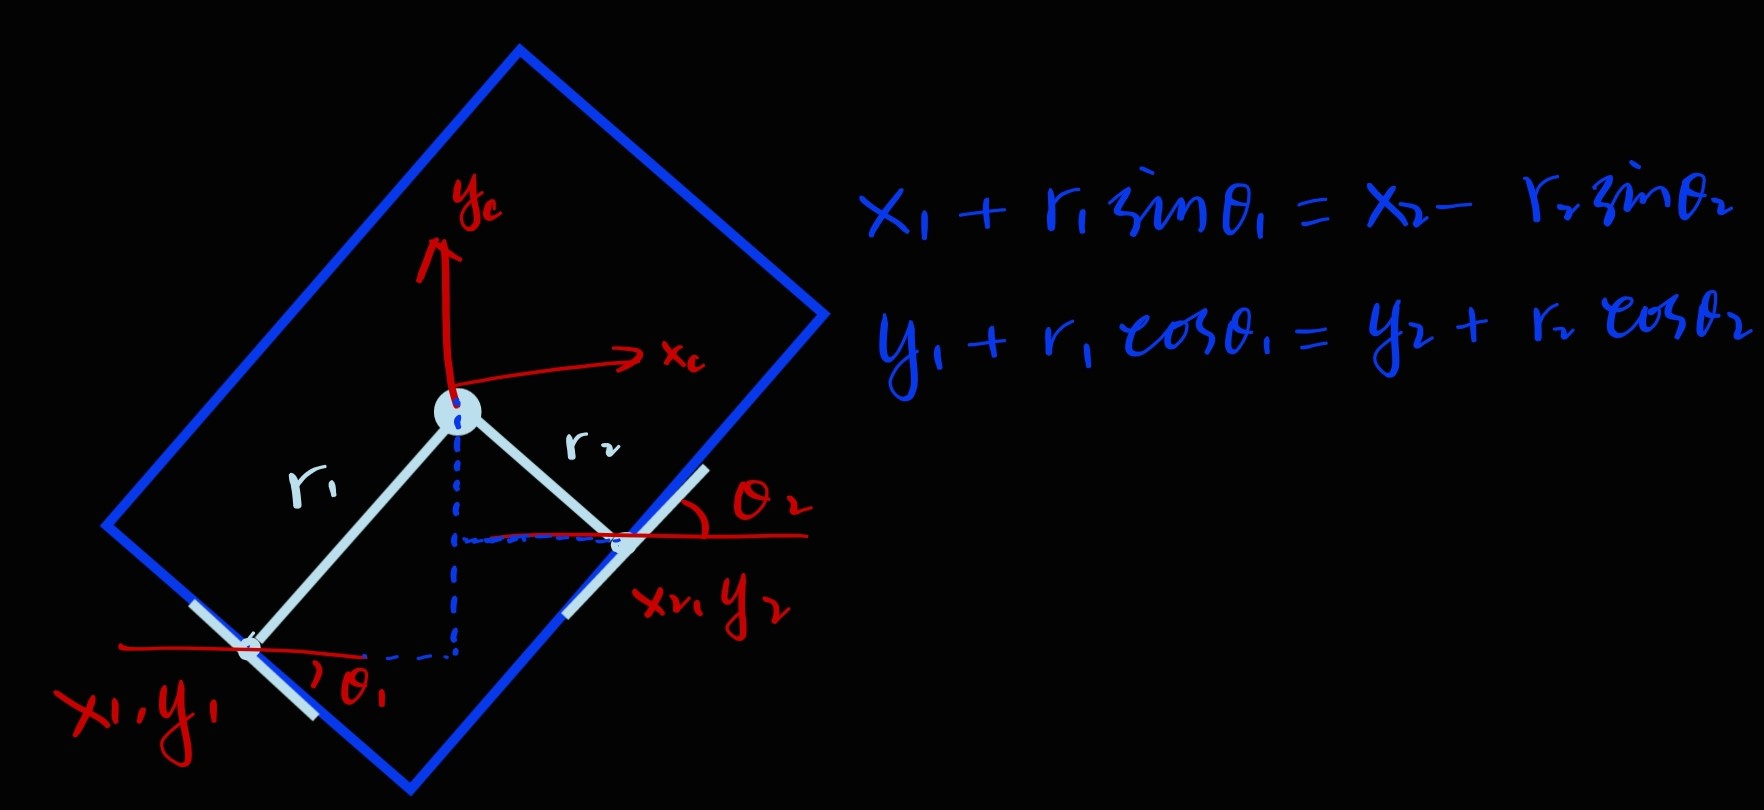 y_c
x_c
r_1
r_2
θ_2
x_2, y_2
θ_1
x_1, y_1
x_1 + r_1 sinθ_1 = x_2 - r_2 sinθ_2
y_1 + r_1 cosθ_1 = y_2 + r_2 cosθ_2